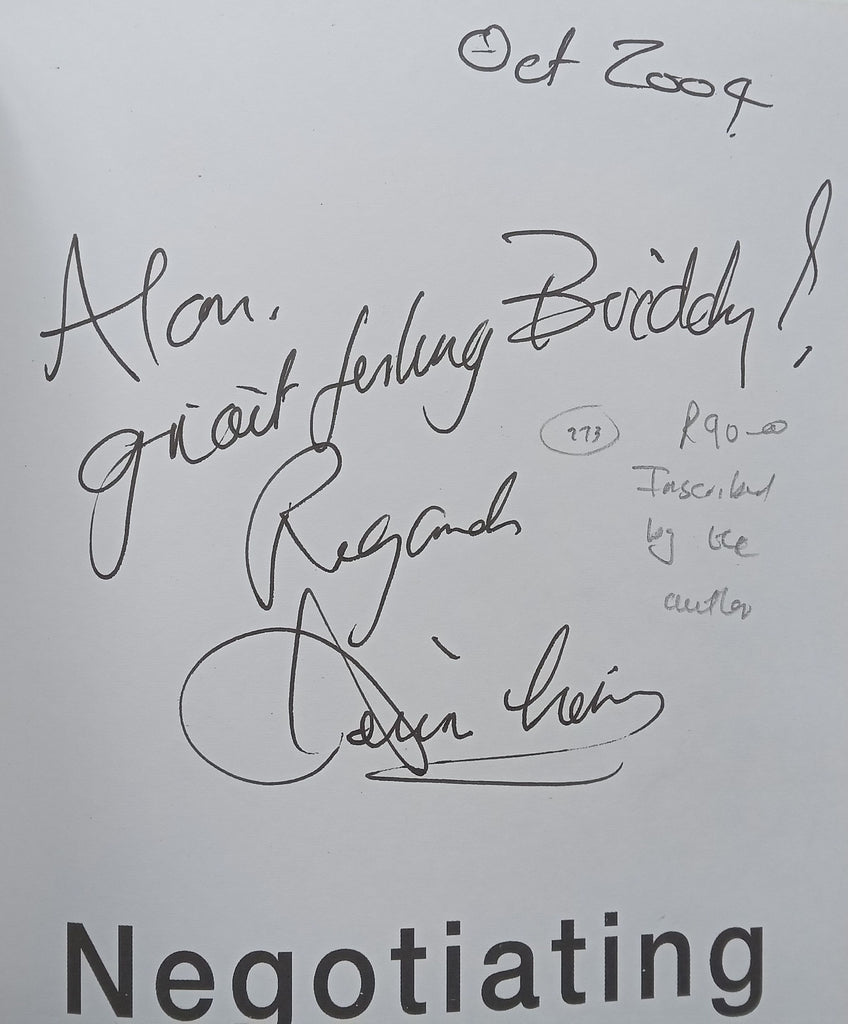 Oct 2004
Alan.
great fishing Buddy!
273
R90-00
Inscribed
by the
author
Regards
Negotiating